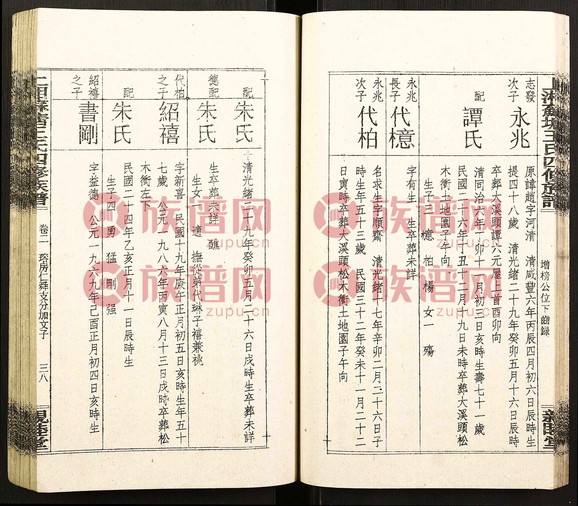 增榜公位下齒錄
志發
次子
永兆
原諱趙字河清 清咸豐六年丙辰四月初六日辰時生
提四十八歲 清光緒二十九年癸卯五月十六日辰時
卒葬大溪頭譚六元屋上首酉卯向
配
譚氏
清同治六年丁卯十一月初三日亥時生壽七十一歲
民國二十六年丁丑十二月十九日未時卒葬大溪頭松
木衝土地園子午向
生子二 檍 柏 楊 女一 殤
永兆
長子
代檍
字有生 生卒葬未詳
永兆
次子
代柏
名求生字順齋 清光緒十七年辛卯二月二十六日子
時生年五十三歲 民國三十二年癸未十一月二十二
日寅時卒葬大溪頭松木衝土地園子午向
配
朱氏
清光緒二十九年癸卯五月二十六日戌時生卒葬未詳
德配
朱氏
生卒葬未詳 醮
生女一 達 撫從弟代琳子禧兼祧
代柏
之子
紹禧
字新喜 民國十九年庚午正月初五日亥時生年五十
七歲 公元一九八六年丙寅八月十三日戌時卒葬松
木衝左下
配
朱氏
民國二十四年乙亥正月十一日辰時生
生子四 勇 猛 剛 強
紹禧
之子
書剛
字益德 公元一九六九年己酉正月初四日亥時生
卷二
三八
親睦堂
族谱网
zupu.cn